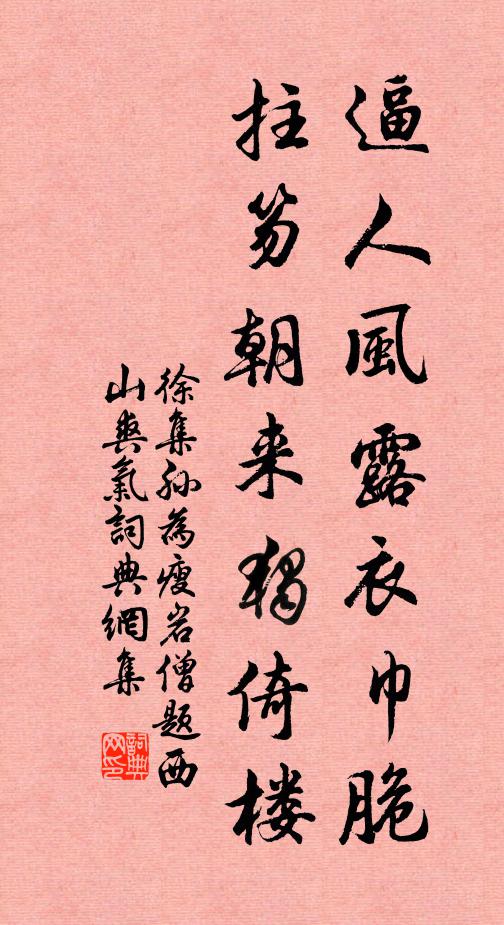 逼人風露衣巾脆
拄笏朝来獨倚楼
徐集孙為瘦岩僧題西
山爽氣詞典網集
詞典网印